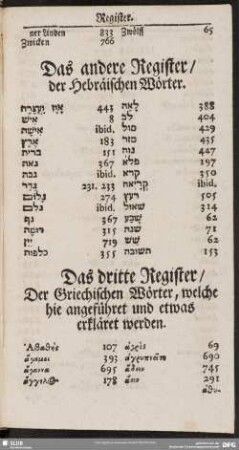 Register.
ver Linden 833 Zwölff 65
Zwicken 766
Das andere Register/
der Hebräischen Wörter.
443 לאה 388
איש 8 לב 404
אישה ibid. מול 429
ארץ 183 מזר 435
ברית 151 נוה 427
גאה 367 פלא 197
גבה ibid. קרא 350
גדר 231. 233 קריאה ibid.
גלום 274 רעץ 505
גלם ibid. שאול 314
גף 367 שבע 62
דומה 315 שנים 71
יין 719 שש 62
כלפות 355 תשובה 153
Das dritte Register/
Der Griechischen Wörter, welche
hie angeführet und etwas
erkläret werden.
107 ἀχρὶς 69
ἄγαμοι 393 ἀγρυπνῶν 690
695 745
178 291